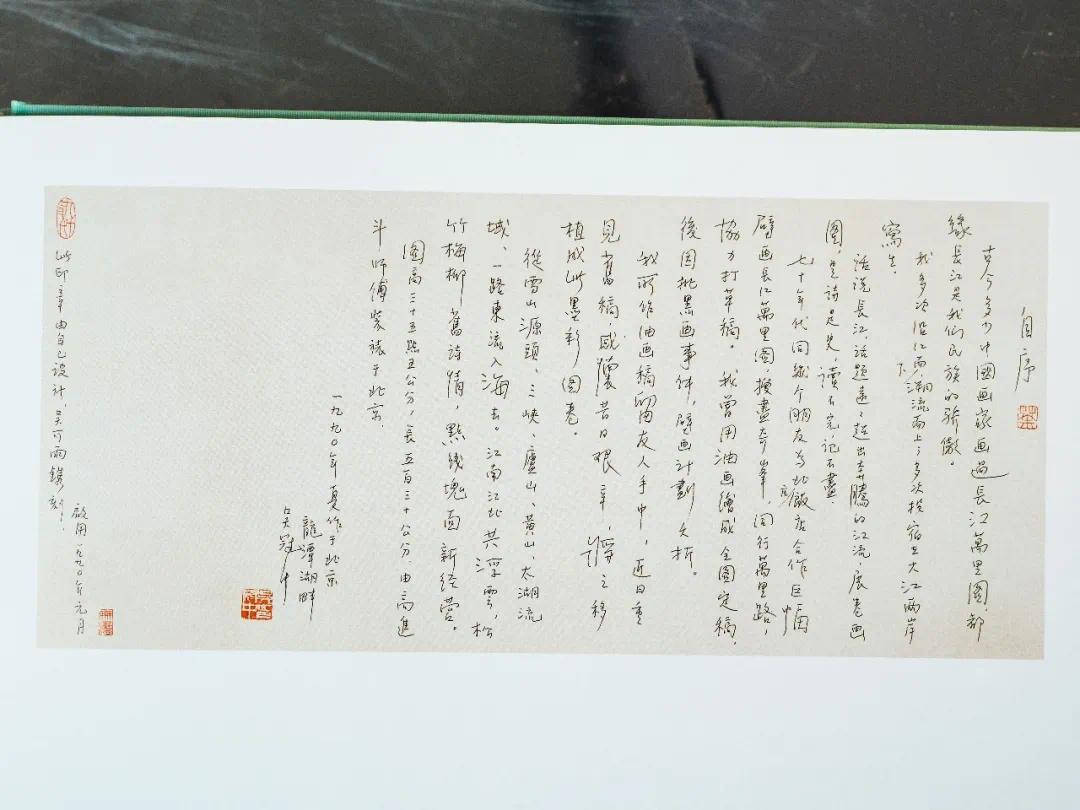 自序
古今多少中國画家画過長江萬里图，都
緣長江是我们民族的骄傲。
我多次沿江而下，溯流而上，多次投宿在大江兩岸
寫生。
話说長江，话题遠遠超出奔騰的江流，展卷画
图，是詩是史，讀不完，记不盡。
七十年代同幾个朋友为北京飯店合作巨幅
壁画長江萬里图，搜盡奇峯，同行萬里路，
协力打草稿。我曾用油画繪成全图定稿，
後因批黑画事件，壁画计劃夭折。
我所作油画稿留友人手中，近日重
見舊稿，感懷昔日艰辛，将之移
植成此墨彩图卷。
從雪山源頭、三峡、廬山、黄山、太湖流
域，一路東流入海去。江南江北共浮雲，松
竹梅柳舊诗情，點线塊面新经营。
图高三十五點五公分，長五百三十公分，由高進
斗师傅装裱于北京。
一九九〇年夏作于北京
龍潭湖畔
吴冠中
此印章由自己设计，吴可雨鐫刻，
啟用一九九〇年元月